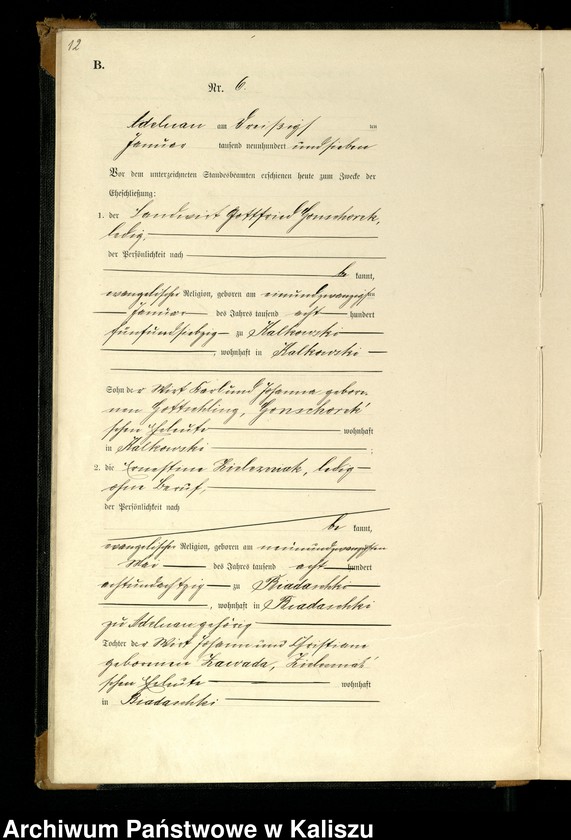 12
B.
Nr. 6
Adelnau am dreißigsten
Januar tausend neunhundert und sieben
Vor dem unterzeichneten Standesbeamten erschienen heute zum Zwecke der
Eheschließung:
1. der Landwirt Gottfried Gonschorek,
ledig,
der Persönlichkeit nach
be kannt,
evangelischer Religion, geboren am einundzwanzigsten
Januar des Jahres tausend acht hundert
fünfundsiebzig zu Kalkowski
, wohnhaft in Kalkowski
Sohn der Wirt Karl und Johanna gebore-
nen Gottschling, Gonschorek'
schen Eheleute wohnhaft
in Kalkowski ;
2. die Ernestine Zielezniak, ledig
ohne Beruf,
der Persönlichkeit nach
be kannt,
evangelischer Religion, geboren am neunundzwanzigsten
Mai des Jahres tausend acht hundert
achtundachtzig zu Biadaschki
, wohnhaft in Biadaschki
zu Adelnau gehörig
Tochter der Wirt Johann und Christiane
geborenen Zawada,
schen Eheleute wohnhaft
in Biadaschki
Archiwum Państwowe w Kaliszu